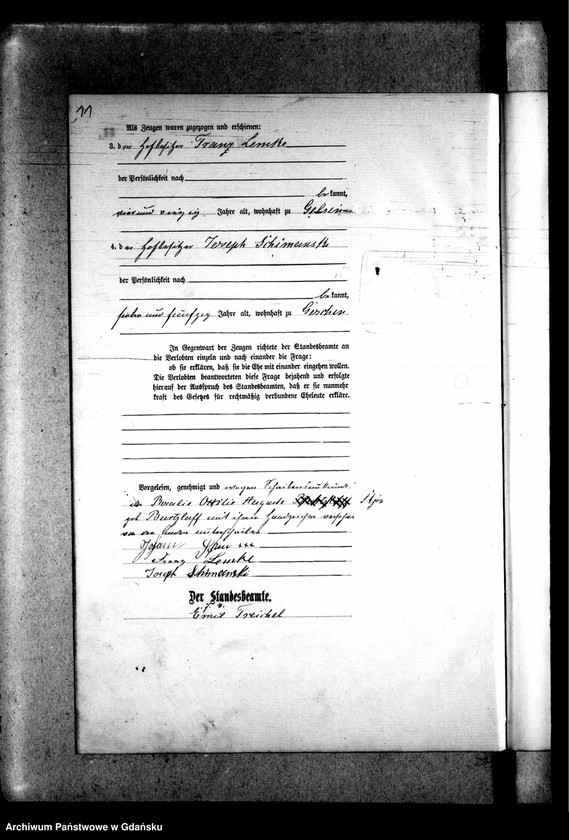 11
Als Zeugen waren zugezogen und erschienen:
3. der Hofbesitzer Franz Lemke
der Persönlichkeit nach
bekannt,
vier und vierzig Jahre alt, wohnhaft zu
4. der Hofbesitzer Joseph Schimanski
der Persönlichkeit nach
bekannt,
sieben und fünfzig Jahre alt, wohnhaft zu
In Gegenwart der Zeugen richtete der Standesbeamte an
die Verlobten einzeln und nach einander die Frage:
ob sie erklären, daß sie die Ehe mit einander eingehen wollen.
Die Verlobten beantworteten diese Frage bejahend und erfolgte
hierauf der Ausspruch des Standesbeamten, daß er sie nunmehr
kraft des Gesetzes für rechtmäßig verbundene Eheleute erkläre.
Vorgelesen, genehmigt und wegen Schreibensunkunde
der Rosalie Ottilie Auguste
geb mit ihrem Handzeichen versehen
von den anderen unterschrieben
Johann +++
Franz Lemke
Joseph Schimanski
Der Standesbeamte.
Emil Treichel
Archiwum Państwowe w Gdańsku